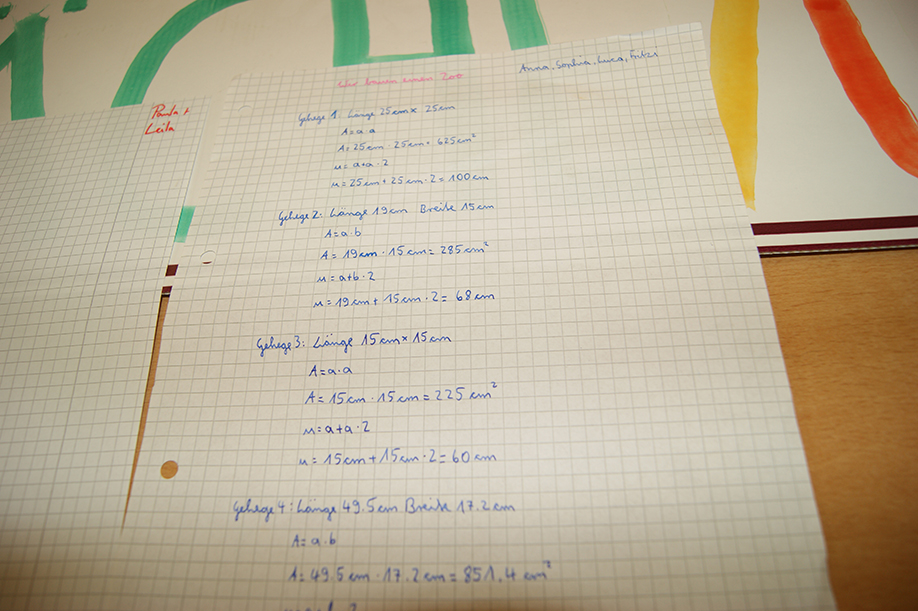 Wir bauen einen Zoo
Anna, Sophia, Luca, Fritzi
Paula +
Leila
Gehege 1: Länge 25cm × 25cm
A=a·a
A=25cm · 25cm = 625cm²
u=a+a·2
u=25cm+25cm·2=100cm
Gehege 2: Länge 19cm Breite 15cm
A=a·b
A=19cm·15cm=285cm²
u=a+b·2
u=19cm+15cm·2=68cm
Gehege 3: Länge 15cm×15cm
A=a·a
A=15cm·15cm=225cm²
u=a+a·2
u=15cm+15cm·2=60cm
Gehege 4: Länge 49.5cm Breite 17.2cm
A=a·b
A=49.5cm·17.2cm=851.4cm²